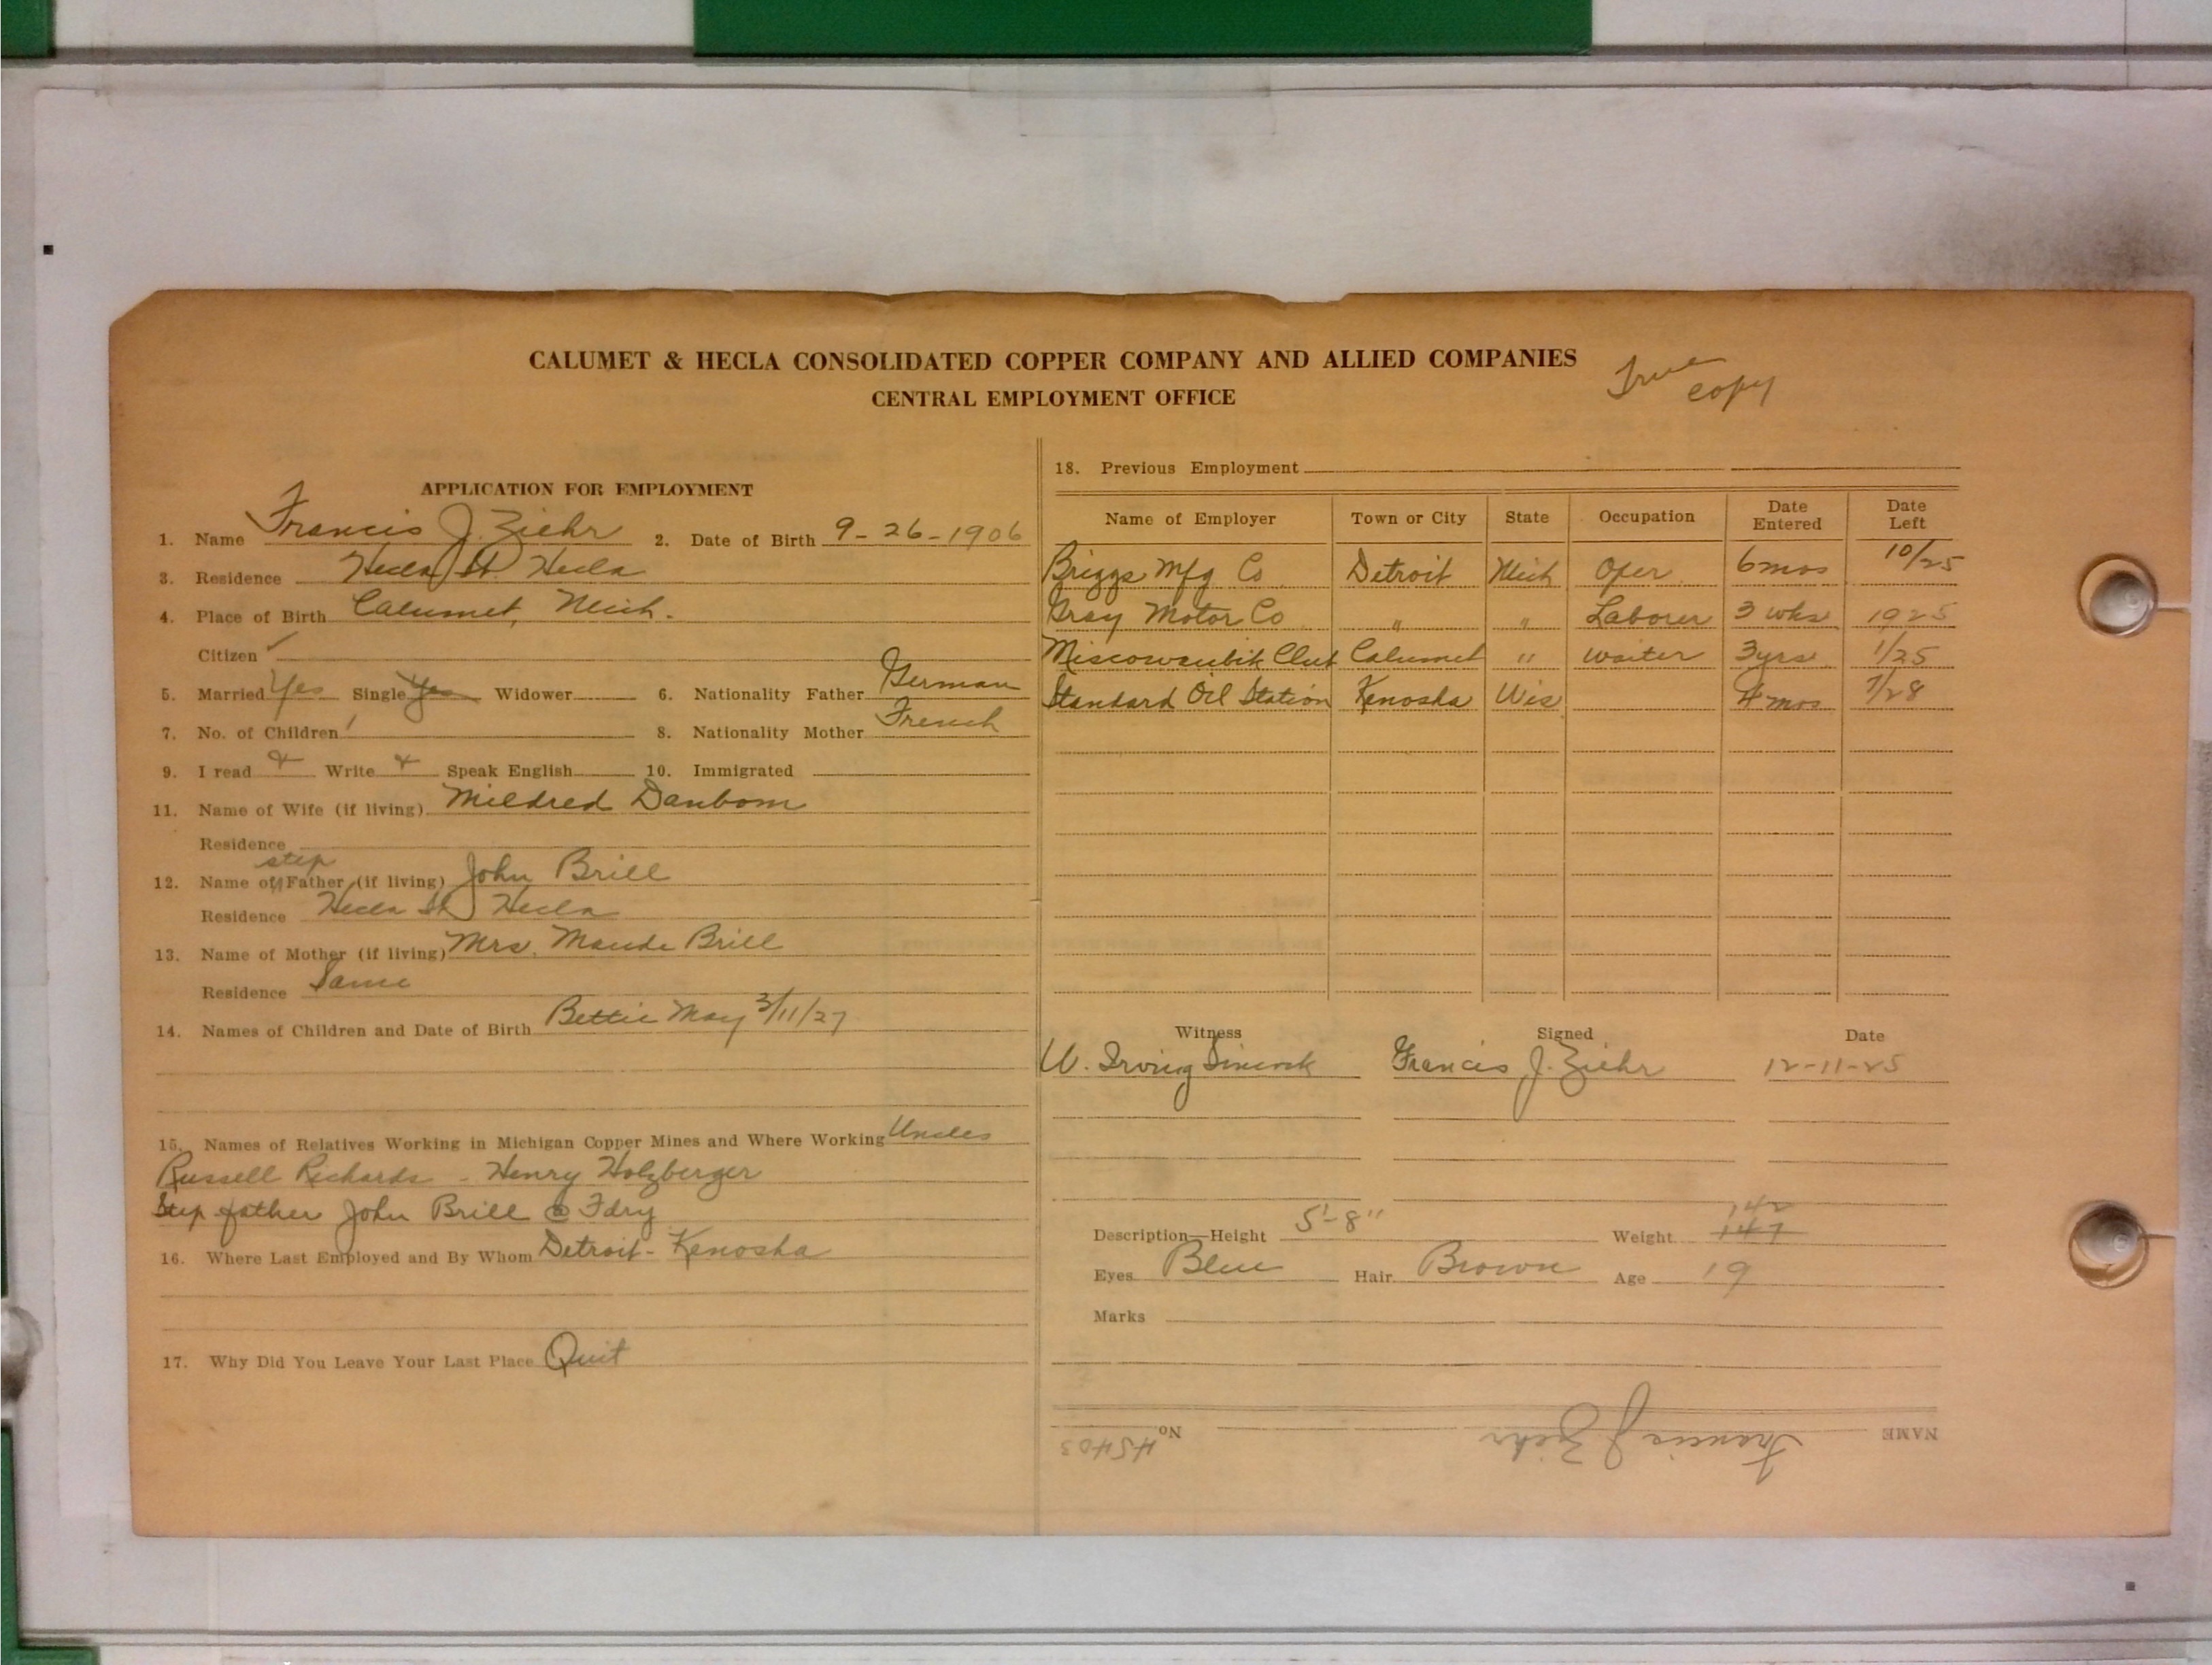 CALUMET & HECLA CONSOLIDATED COPPER COMPANY AND ALLIED COMPANIES
CENTRAL EMPLOYMENT OFFICE
True copy
APPLICATION FOR EMPLOYMENT
1. Name Francis J. Ziehr 2. Date of Birth 9-26-1906
3. Residence Hecla St. Hecla
4. Place of Birth Calumet, Mich.
Citizen ✓
5. Married Yes Single Yes Widower 6. Nationality Father German
7. No. of Children 1 8. Nationality Mother French
9. I read Write Speak English 10. Immigrated
11. Name of Wife (if living) Mildred Danbom
Residence
12. Name of step Father (if living) John Brill
Residence Hecla St Hecla
13. Name of Mother (if living) Mrs. Maude Brill
Residence Same
14. Names of Children and Date of Birth Bettie May 3/11/27
15. Names of Relatives Working in Michigan Copper Mines and Where Working Uncles
Russell Richards - Henry Holzberger
Step father John Brill @ Fdry
16. Where Last Employed and By Whom Detroit - Kenosha
17. Why Did You Leave Your Last Place Quit
18. Previous Employment
Name of Employer Town or City State Occupation Date Entered Date Left
Briggs Mfg Co Detroit Mich Oper 6 mos 10/25
Gray Motor Co " " Laborer 3 wks 1925
Miscowaubik Club Calumet " waiter 3 yrs 1/25
Standard Oil Station Kenosha Wis 4 mos 7/28
Witness Signed Date
W. Irving Francis J. Ziehr 12-11-25
142
Description—Height 5'-8" Weight 147
Eyes Blue Hair Brown Age 19
Marks
NAME Francis J Ziehr No 45403